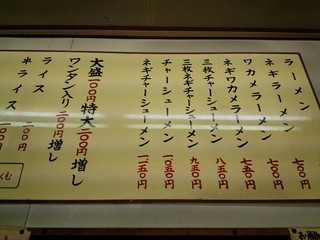 ラーメン 七〇〇円
ネギラーメン 七〇〇円
ワカメラーメン 七五〇円
ネギワカメラーメン 八五〇円
三枚チャーシューメン 九五〇円
三枚ネギチャーシューメン
チャーシューメン 一〇五〇円
ネギチャーシューメン 一一五〇円
大盛一〇〇円 特大二〇〇円増し
ワンタン入り二〇〇円増し
ライス 二〇〇円
半ライス